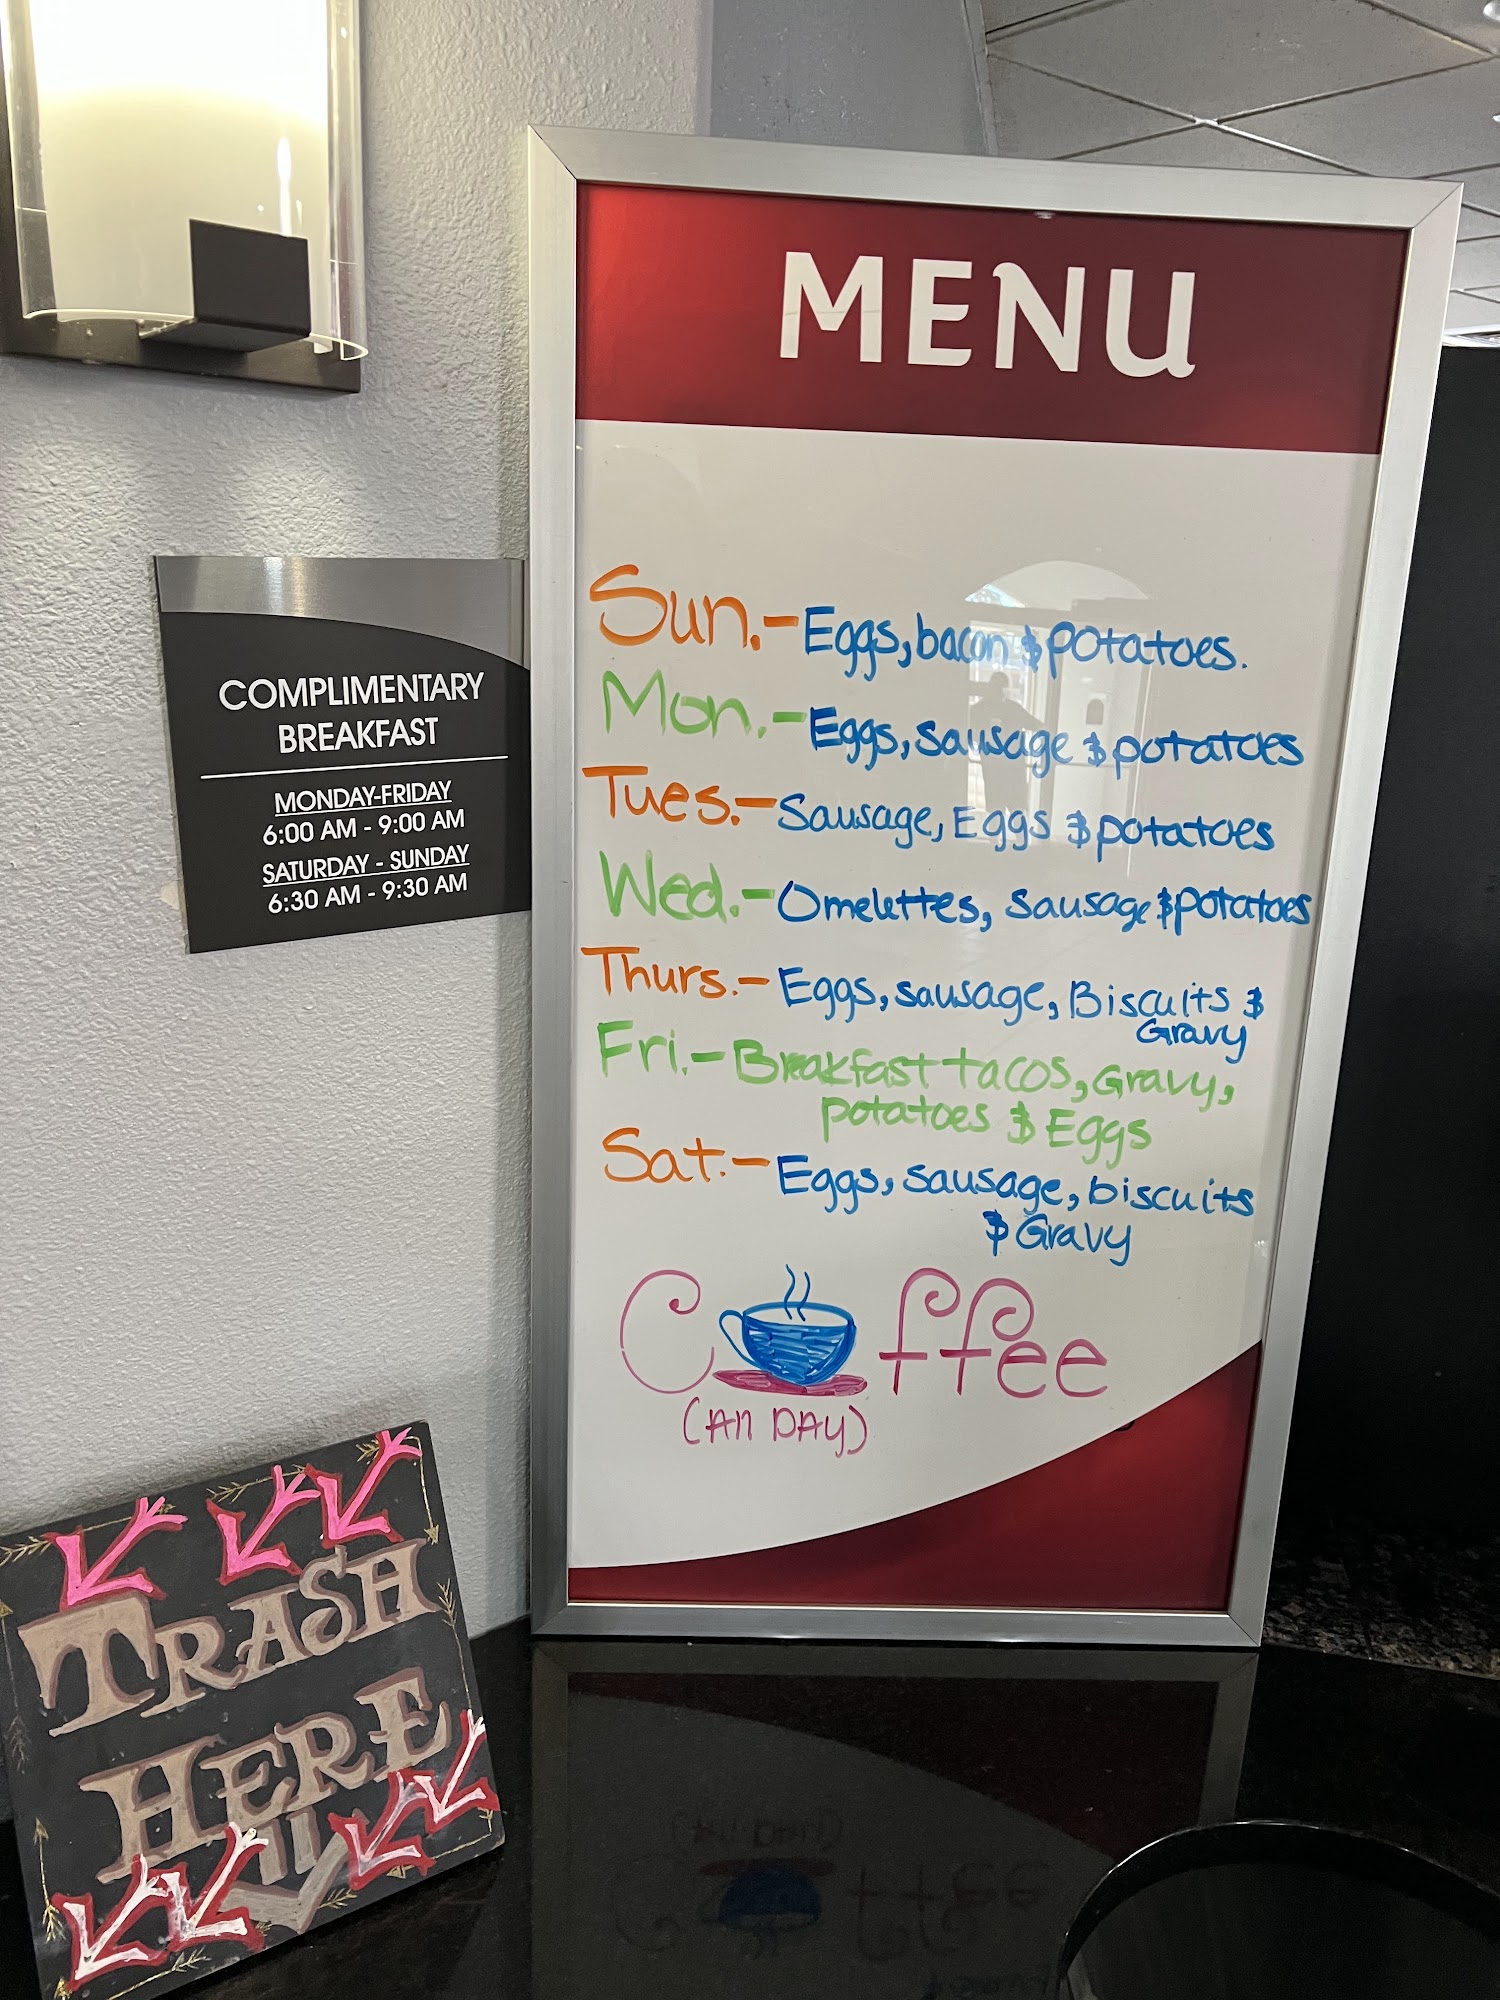 MENU
Sun.-Eggs, bacon & potatoes.
Mon.-Eggs, sausage & potatoes
Tues.-Sausage, Eggs & potatoes
Wed.-Omelettes, sausage & potatoes
Thurs.-Eggs, sausage, Biscuits &
Gravy
Fri.-Breakfast tacos, Gravy,
potatoes & Eggs
Sat.-Eggs, sausage, biscuits
& Gravy
Coffee
(All DAY)
COMPLIMENTARY
BREAKFAST
MONDAY-FRIDAY
6:00 AM - 9:00 AM
SATURDAY - SUNDAY
6:30 AM - 9:30 AM
TRASH
HERE